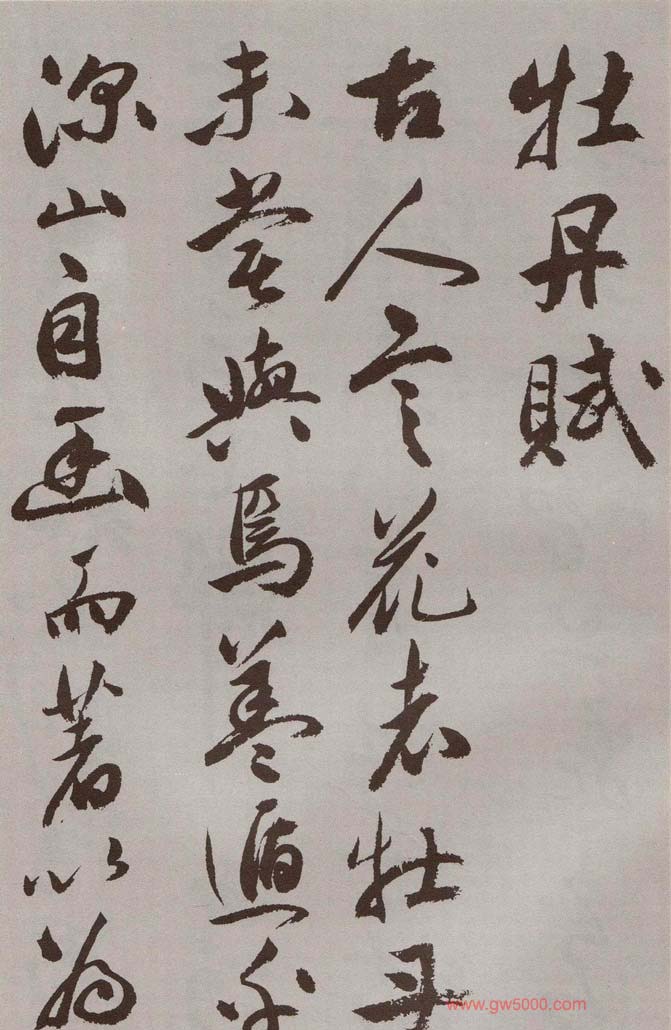 牡丹賦
古人言花者牡丹
未嘗與焉蓋遁乎
深山自幽而著以為
www.gw5000.com